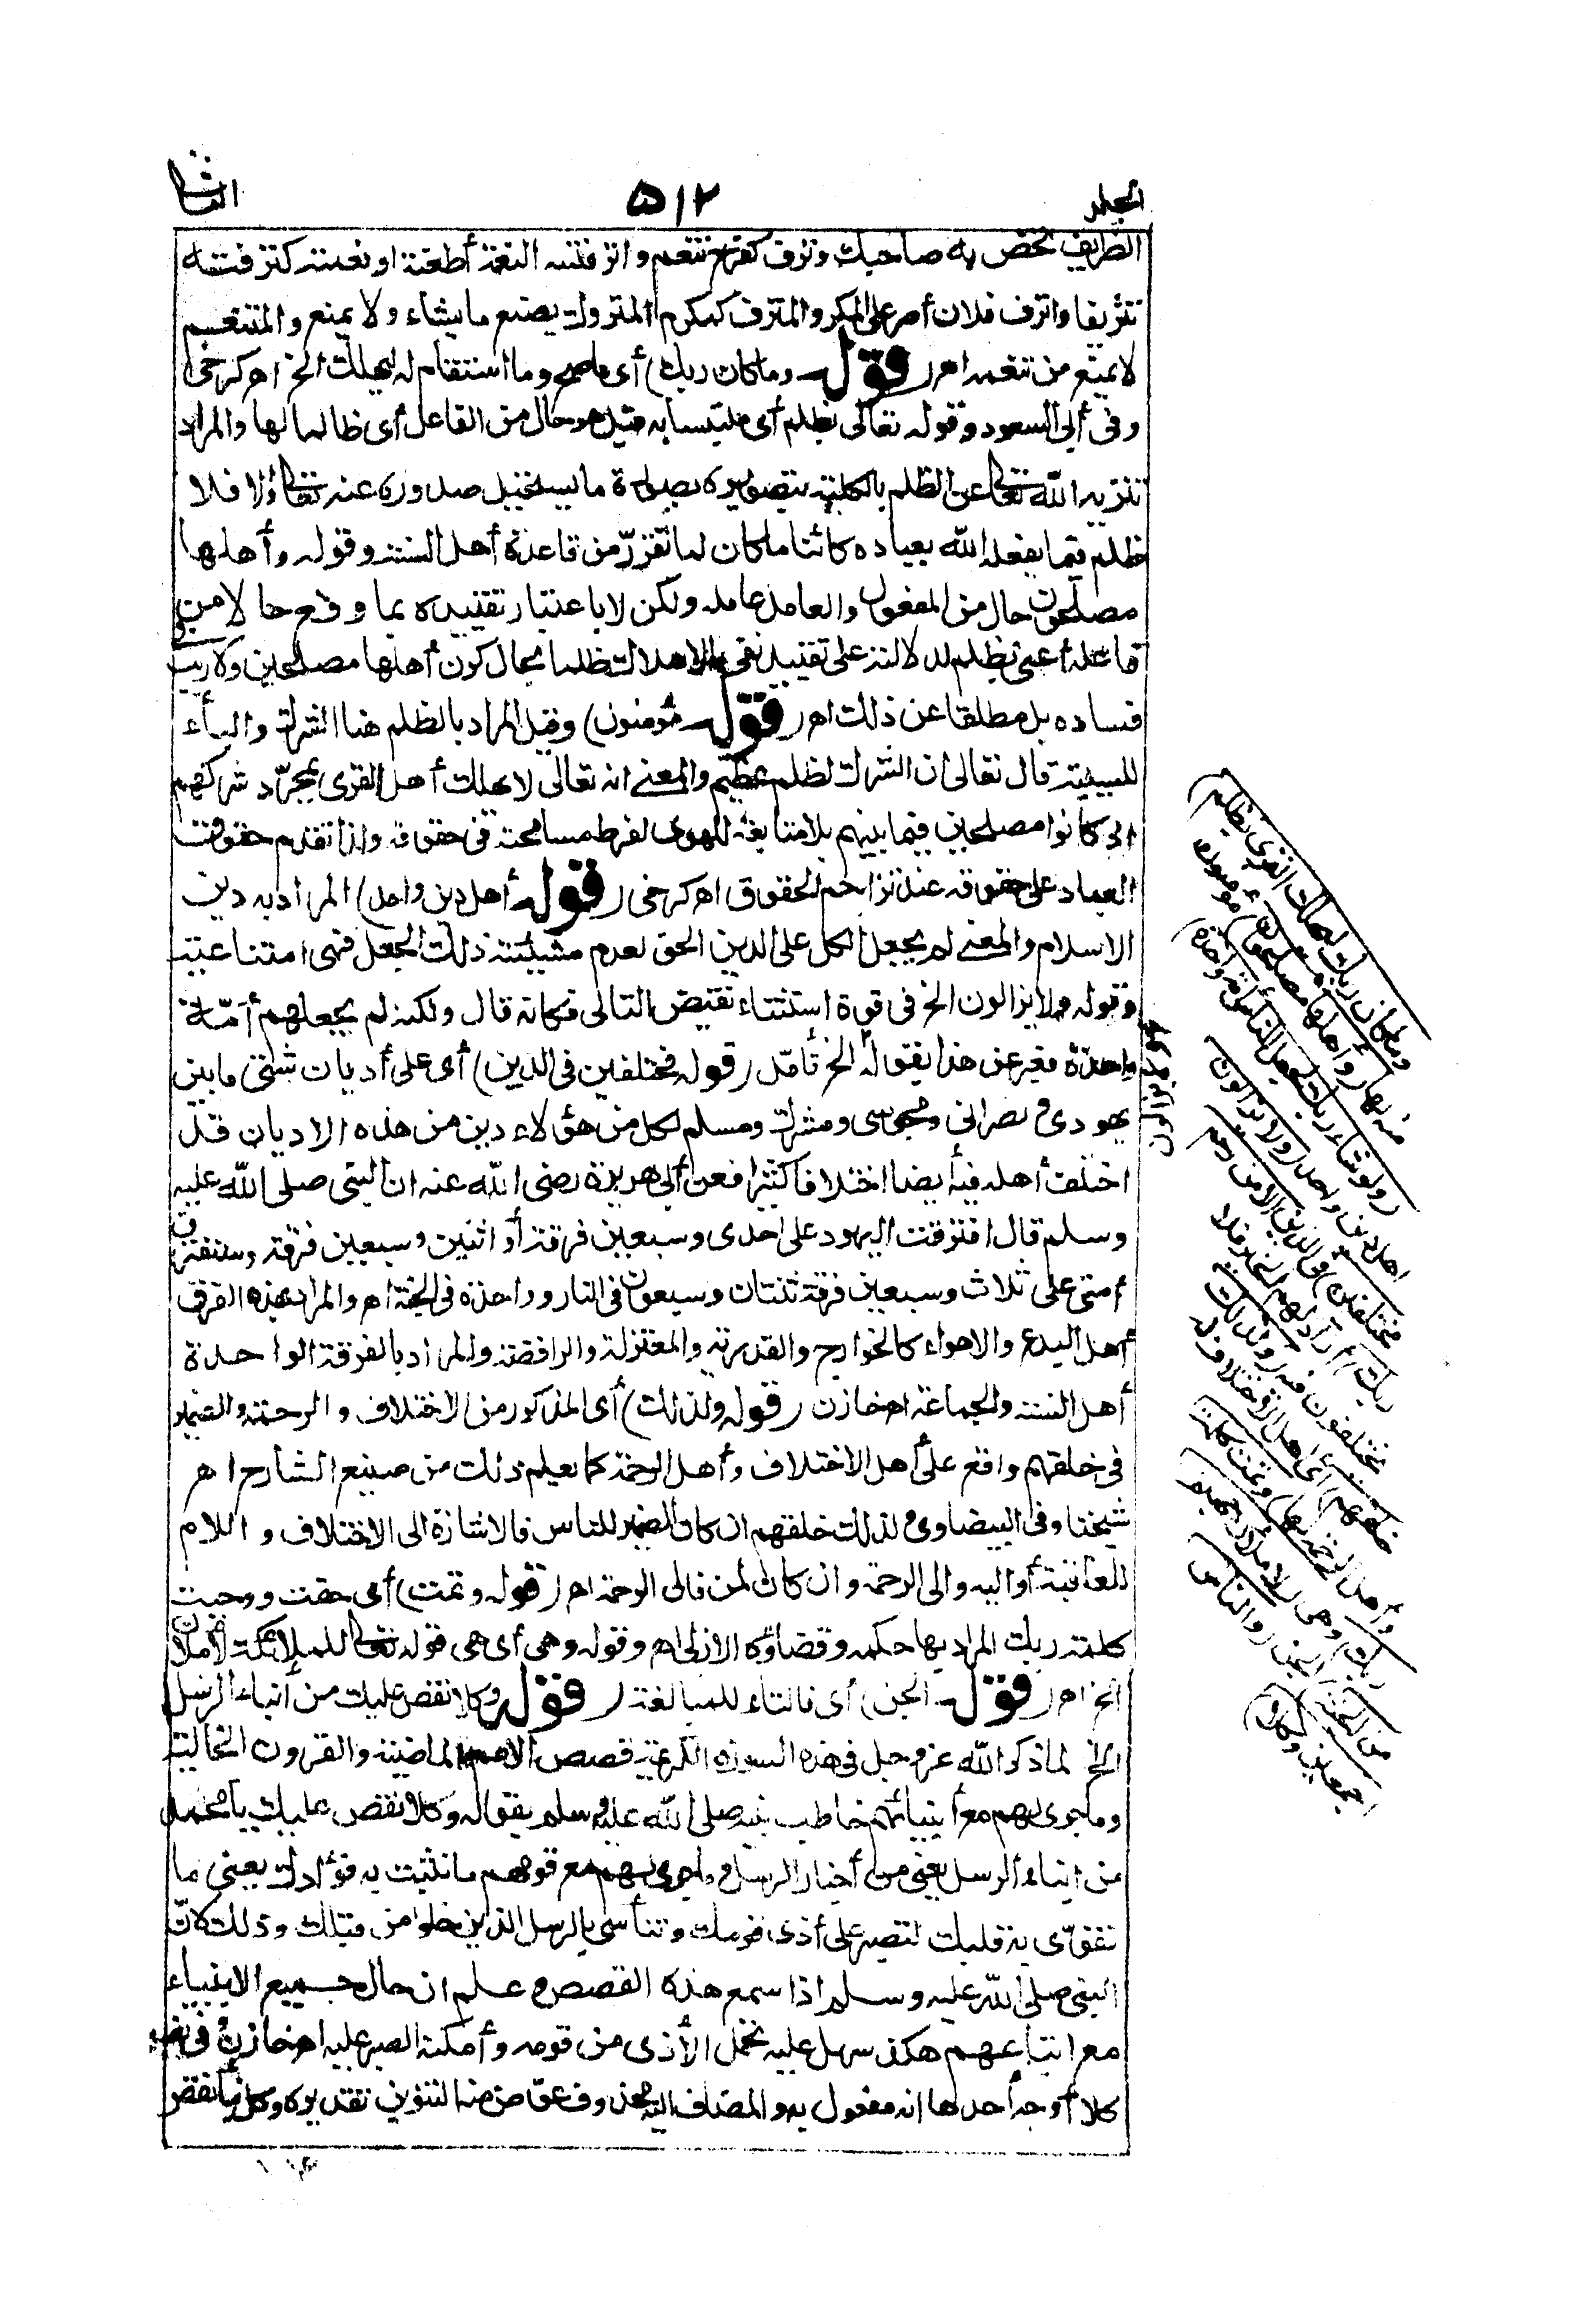 الجلد
٥١٢
الثانى
الظريف تخص به صاحبك وترف كفرح تنعم واترفته النعمة أطغته او نعمته كترفته
تتريفا واترف فلان أصر على المكر والمترف كمكرم المتروك يصنع ما يشاء ولا يمنع والمتنعم
لا يمنع من تنعمه اهـ (قوله وما كان ربك) أى ما صح وما استقام له ليهلك الخ اهـ كرخى
وفى أبى السعود وقوله تعالى بظلم أى ملتبسا به قيل هو حال من الفاعل أى ظالما لها والمراد
تنزيه الله تعالى عن الظلم بالكلية بتصويره بصورة ما يستحيل صدوره عنه تعالى والا فلا
ظلم فيما يفعله الله بعباده كائنا ما كان لما تقرر من قاعدة أهل السنة وقوله وأهلها
مصلحون حال من المفعول والعامل عامله ولكن لا باعتبار تقييده بما وقع حالا من
فاعله أعنى بظلم لدلالته على تقييد نفى الاهلاك ظلما بحال كون أهلها مصلحين ولا ريب فى
فساده بل مطلقا عن ذلك اهـ (قوله مؤمنون) وقيل المراد بالظلم هنا الشرك والباء
للسببية قال تعالى ان الشرك لظلم عظيم والمعنى انه تعالى لا يهلك أهل القرى بمجرد شركهم
اذا كانوا مصلحين فيما بينهم بلا متابعة للهوى لفرط مسامحته فى حقوقه ولذا تقدم حقوق
العباد على حقوقه عند تزاحم الحقوق اهـ كرخى (قوله أهل دين واحد) المراد به دين
الاسلام والمعنى لم يجعل الكل على الدين الحق لعدم مشيئته ذلك الجعل فهى امتناعية
وقوله ولا يزالون الخ فى قوة استثناء نقيض التالى فكانه قال ولكنه لم يجعلهم أمّة
واحدة فعبر عن هذا بقوله الخ تأمّل (قوله مختلفين فى الدين) أى على أديان شتى ما بين
يهودى ونصرانى ومجوسى ومشرك ومسلم لكل من هؤلاء دين من هذه الاديان قد
اختلف أهله فيه أيضا اختلافا كثيرا فعن أبى هريرة رضى الله عنه ان النبى صلى الله عليه
وسلم قال افترقت اليهود على احدى وسبعين فرقة أو اثنين وسبعين فرقة وستفترق
أمتى على ثلاث وسبعين فرقة ثنتان وسبعون فى النار وواحدة فى الجنة اهـ والمراد بهذه الفرق
أهل البدع والاهواء كالخوارج والقدرية والمعتزلة والرافضة والمراد بالفرقة الواحدة
أهل السنة والجماعة اهـ خازن (قوله ولذلك) أى المذكور من الاختلاف والرحمة والضمير
فى خلقهم واقع على أهل الاختلاف وأهل الرحمة كما يعلم ذلك من صنيع الشارح اهـ
شيخنا وفى البيضاوى ولذلك خلقهم ان كان الضمير للناس فالاشارة الى الاختلاف واللام
للعاقبة أو اليه والى الرحمة وان كان لمن فالى الرحمة اهـ (قوله وتمت) أى حقت ووجبت
كلمة ربك المراد بها حكمه وقضاؤه الازلى اهـ وقوله وهى أى هى قوله تعالى للملائكة لأملأن
الخ اهـ (قوله الجن) أى فالتاء للمبالغة (قوله وكلا نقص عليك من أنباء الرسل
الخ لما ذكر الله عز وجل فى هذه السورة الكريمة قصص الامم الماضية والقرون الخالية
وما جرى لهم مع أنبيائهم خاطب نبيه صلى الله عليه وسلم بقوله وكلا نقص عليك يا محمد
من انباء الرسل يعنى من أخبار الرسل وما جرى لهم مع قومهم ما نثبت به فؤادك يعنى ما
نقوّى به قلبك لتصبر على أذى قومك وتتأسى بالرسل الذين خلوا من قبلك وذلك لانّ
النبى صلى الله عليه وسلم اذا سمع هذه القصص وعلم ان حال جميع الانبياء
مع اتباعهم هكذا سهل عليه تحمل الأذى من قومه وأمكنه الصبر عليه اهـ خازن وفى نصب
كلا أوجه أحدها انه مفعول به والمضاف اليه محذوف عوّض منه التنوين تقديره وكل نبأ نقص
وما كان ربك ليهلك القرى بظلم)
منه لها (وأهلها مصلحون) مؤمنون
(ولو شاء ربك لجعل الناس أمة واحدة)
اهل دين واحد (ولا يزالون
مختلفين) فى الدين الا من رحم
ربك) أراد لهم الخير فلا
يختلفون فيه (ولذلك
خلقهم) أى اهل الاختلاف له
وأهل الرحمة لها (وتمت كلمة
ربك) وهى (لاملأن جهنم
من الجنة) الجن (والناس
اجمعين وكلا)